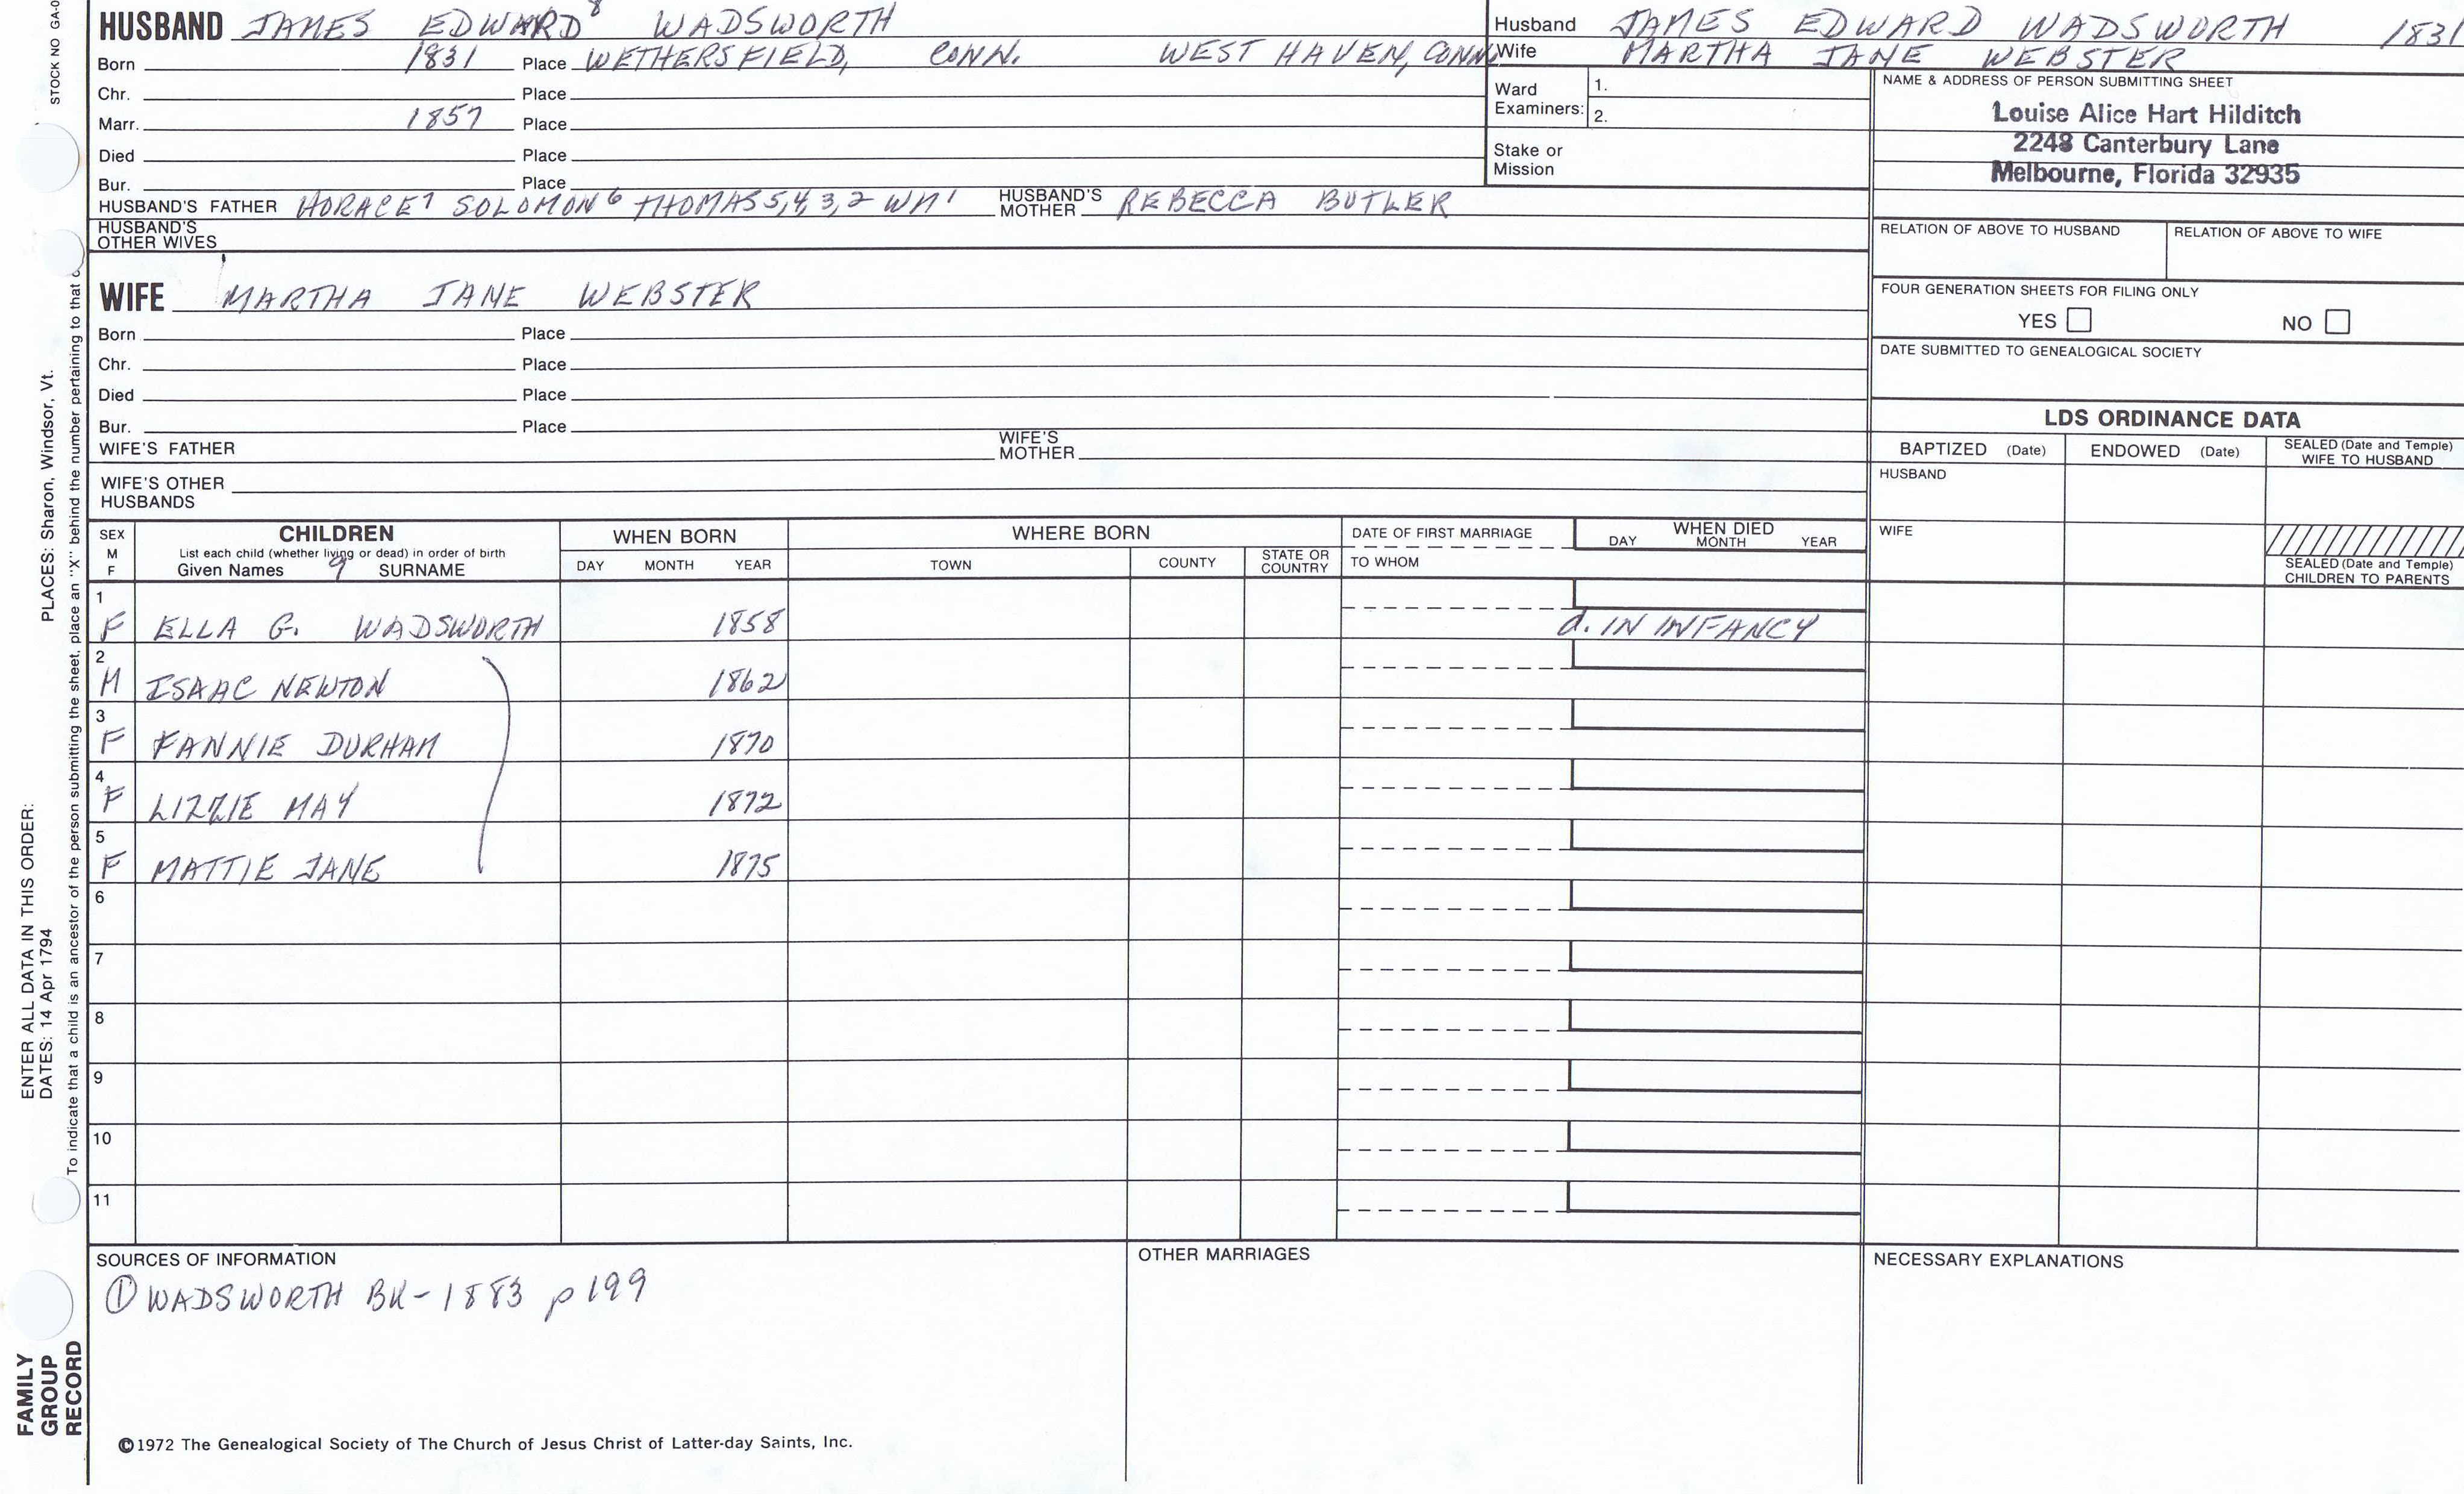 STOCK NO GA-0
HUSBAND JAMES EDWARD⁸ WADSWORTH
Born 1831 Place WETHERSFIELD, CONN. WEST HAVEN, CONN.
Chr. Place
Marr. 1857 Place
Died Place
Bur. Place
HUSBAND'S FATHER HORACE⁷ SOLOMON⁶ THOMAS 5,4,3,2 WM¹ HUSBAND'S MOTHER REBECCA BUTLER
HUSBAND'S OTHER WIVES
Husband JAMES EDWARD WADSWORTH 1831
Wife MARTHA JANE WEBSTER
Ward Examiners: 1.
2.
Stake or Mission
NAME & ADDRESS OF PERSON SUBMITTING SHEET
Louise Alice Hart Hilditch
2248 Canterbury Lane
Melbourne, Florida 32935
RELATION OF ABOVE TO HUSBAND RELATION OF ABOVE TO WIFE
FOUR GENERATION SHEETS FOR FILING ONLY
YES NO
DATE SUBMITTED TO GENEALOGICAL SOCIETY
WIFE MARTHA JANE WEBSTER
Born Place
Chr. Place
Died Place
Bur. Place
WIFE'S FATHER WIFE'S MOTHER
WIFE'S OTHER HUSBANDS
LDS ORDINANCE DATA
BAPTIZED (Date) ENDOWED (Date) SEALED (Date and Temple) WIFE TO HUSBAND
HUSBAND
WIFE
SEALED (Date and Temple) CHILDREN TO PARENTS
SEX M F
CHILDREN
List each child (whether living or dead) in order of birth
Given Names 9 SURNAME
WHEN BORN
DAY MONTH YEAR
WHERE BORN
TOWN COUNTY STATE OR COUNTRY
DATE OF FIRST MARRIAGE
TO WHOM
WHEN DIED
DAY MONTH YEAR
1 F ELLA G. WADSWORTH 1858 d. IN INFANCY
2 M ISAAC NEWTON 1862
3 F FANNIE DURHAM 1870
4 F LIZZIE MAY 1872
5 F MATTIE JANE 1875
6
7
8
9
10
11
SOURCES OF INFORMATION
① WADSWORTH BK-1883 p 199
OTHER MARRIAGES
NECESSARY EXPLANATIONS
©1972 The Genealogical Society of The Church of Jesus Christ of Latter-day Saints, Inc.
FAMILY GROUP RECORD
ENTER ALL DATA IN THIS ORDER:
DATES: 14 Apr 1794 PLACES: Sharon, Windsor, Vt.
To indicate that a child is an ancestor of the person submitting the sheet, place an "X" behind the number pertaining to that c